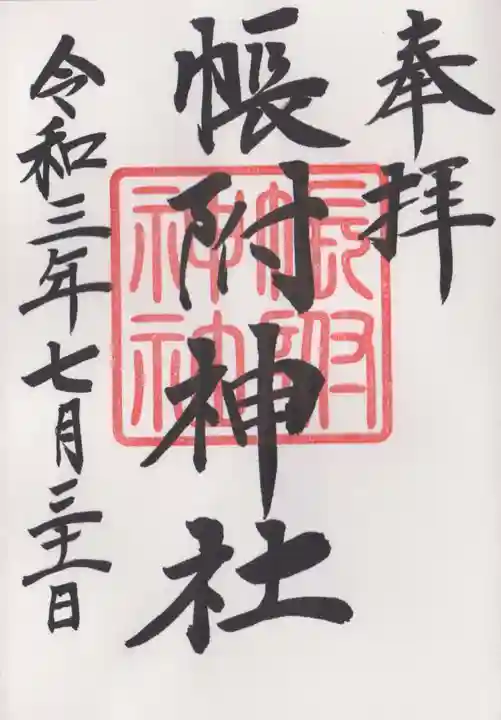 奉拝
帳附神社
帳附
神社
令和三年七月三十一日